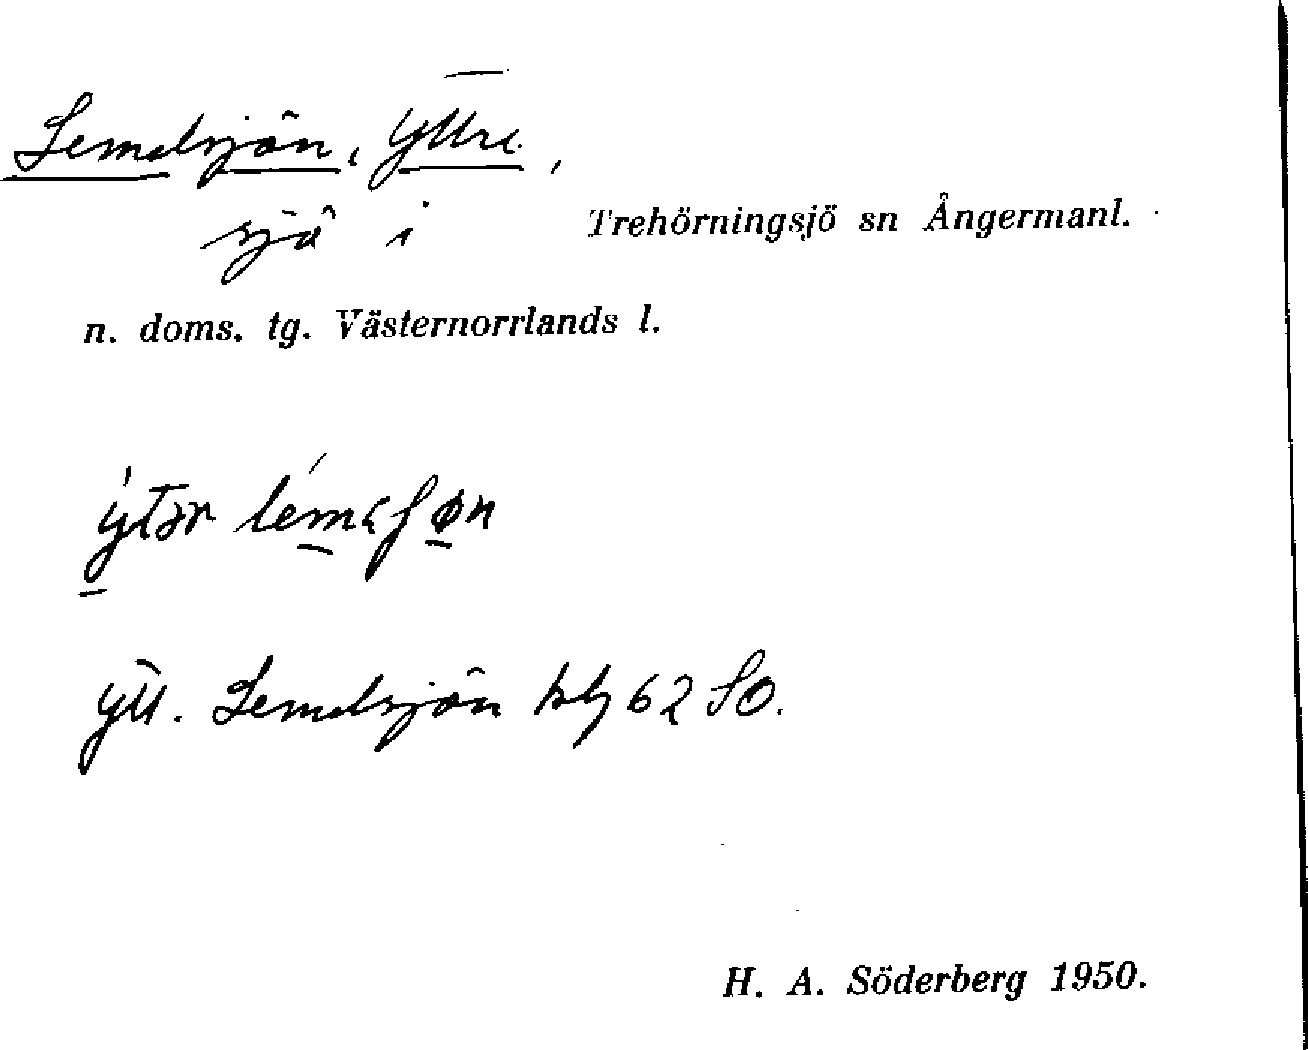 Lemelsjön, Yttre,
sjö i Trehörningsjö sn Ångermanl.
n. doms. tg. Västernorrlands l.
ýtər
Ytt. Lemelsjön kbl 62 SO.
H. A. Söderberg 1950.